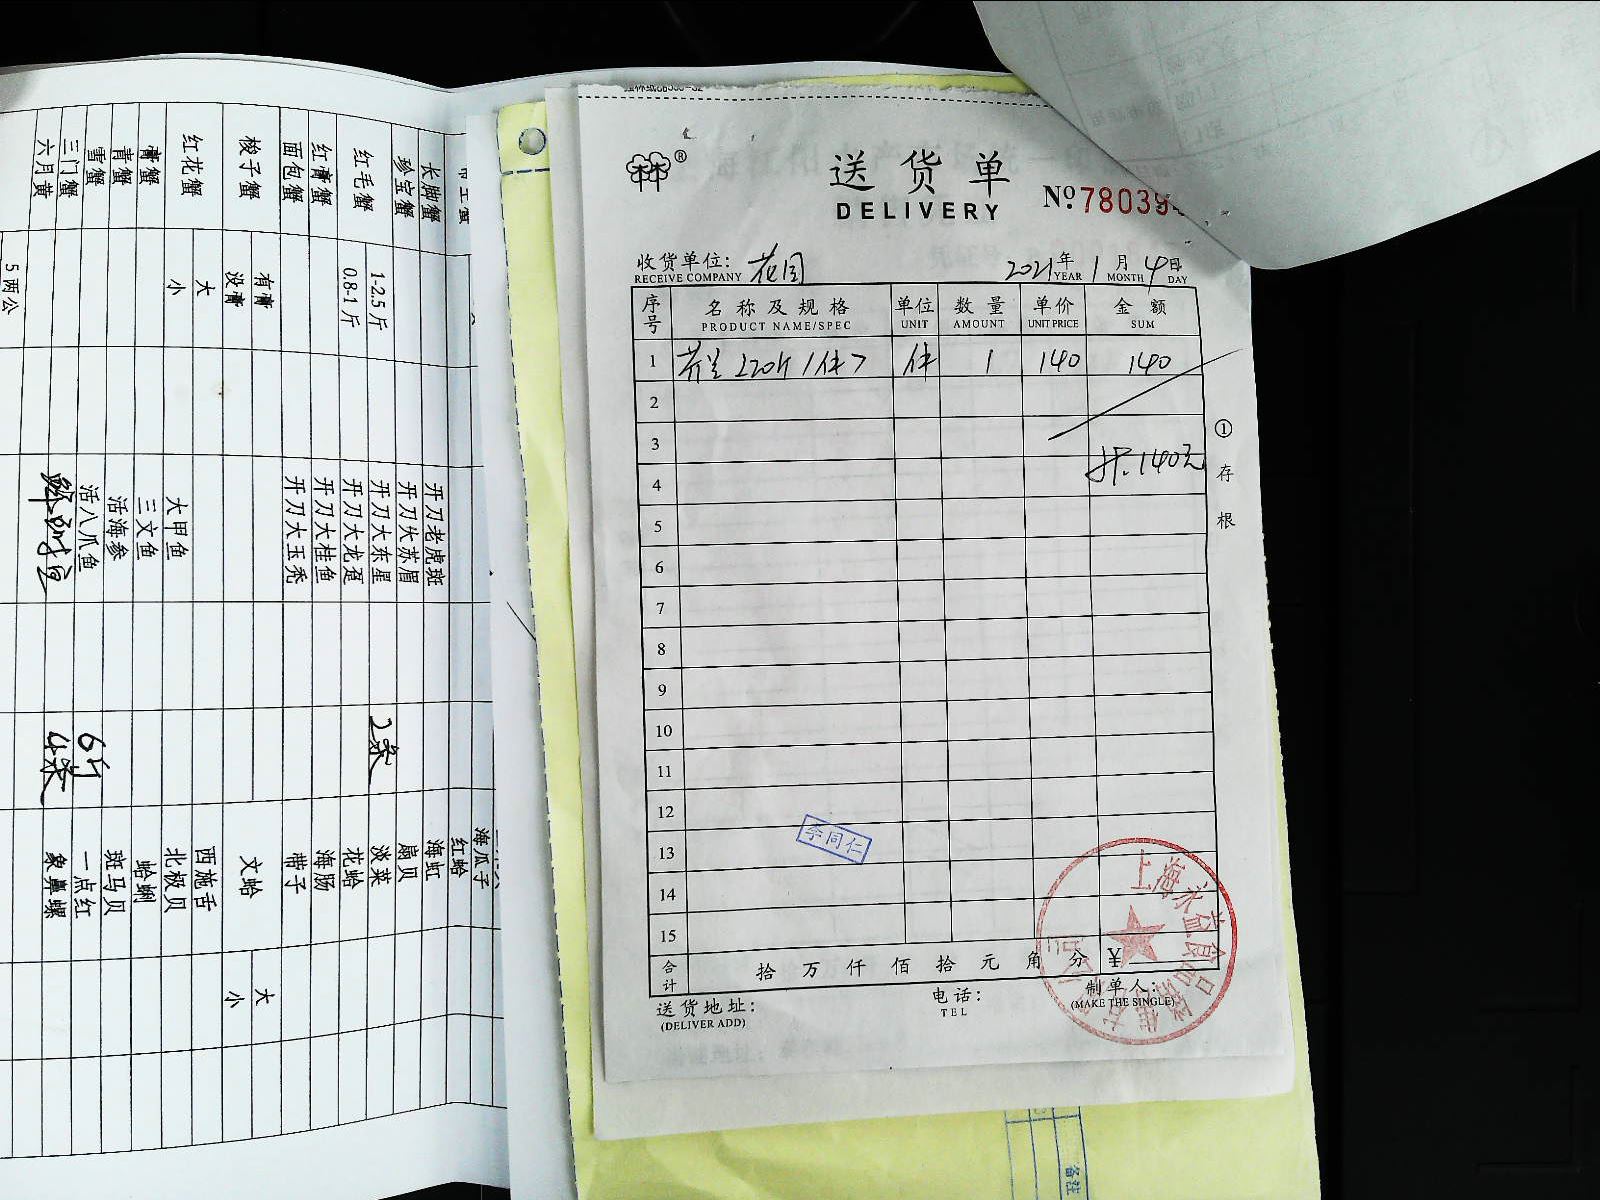 送货单
DELIVERY
№ 78039
收货单位： 花园
RECEIVE COMPANY
2021年1月4日
YEAR MONTH DAY
序号 名称及规格 单位 数量 单价 金额
PRODUCT NAME/SPEC UNIT AMOUNT UNIT PRICE SUM
1 件 1 140 140
2
3
4 共.140元
5
6
7
8
9
10
11
12
13
14
15
李同仁
合计 拾 万 仟 佰 拾 元 角 分 ¥
送货地址：
(DELIVER ADD)
电话：
TEL
制单人：
(MAKE THE SINGLE)
①存根
上海
备注
长脚蟹
珍宝蟹
红毛蟹 1-2.5斤
0.8-1斤
红膏蟹
面包蟹
梭子蟹 有膏
没膏
红花蟹 大
小
膏蟹
青蟹
雪蟹
三门蟹
六月黄 5两公
开刀老虎斑
开刀大苏眉
开刀大东星 2条
开刀大龙趸
开刀大桂鱼
开刀大玉秃
大甲鱼
三文鱼
活海参
活八爪鱼 6斤
4条
海瓜子
红蛤
海虹
扇贝
淡菜
花蛤
海肠
带子
文蛤 大
小
西施舌
北极贝
蛤蜊
斑马贝
一点红
象鼻螺